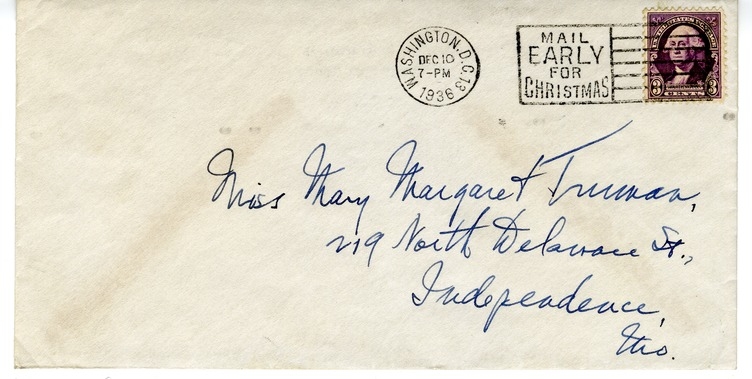 WASHINGTON, D.C. 13
DEC 10
7-PM
1936
MAIL
EARLY
FOR
CHRISTMAS
UNITED STATES POSTAGE
3 3
CENTS
Miss Mary Margaret Truman,
219 North Delaware St.,
Independence,
Mo.